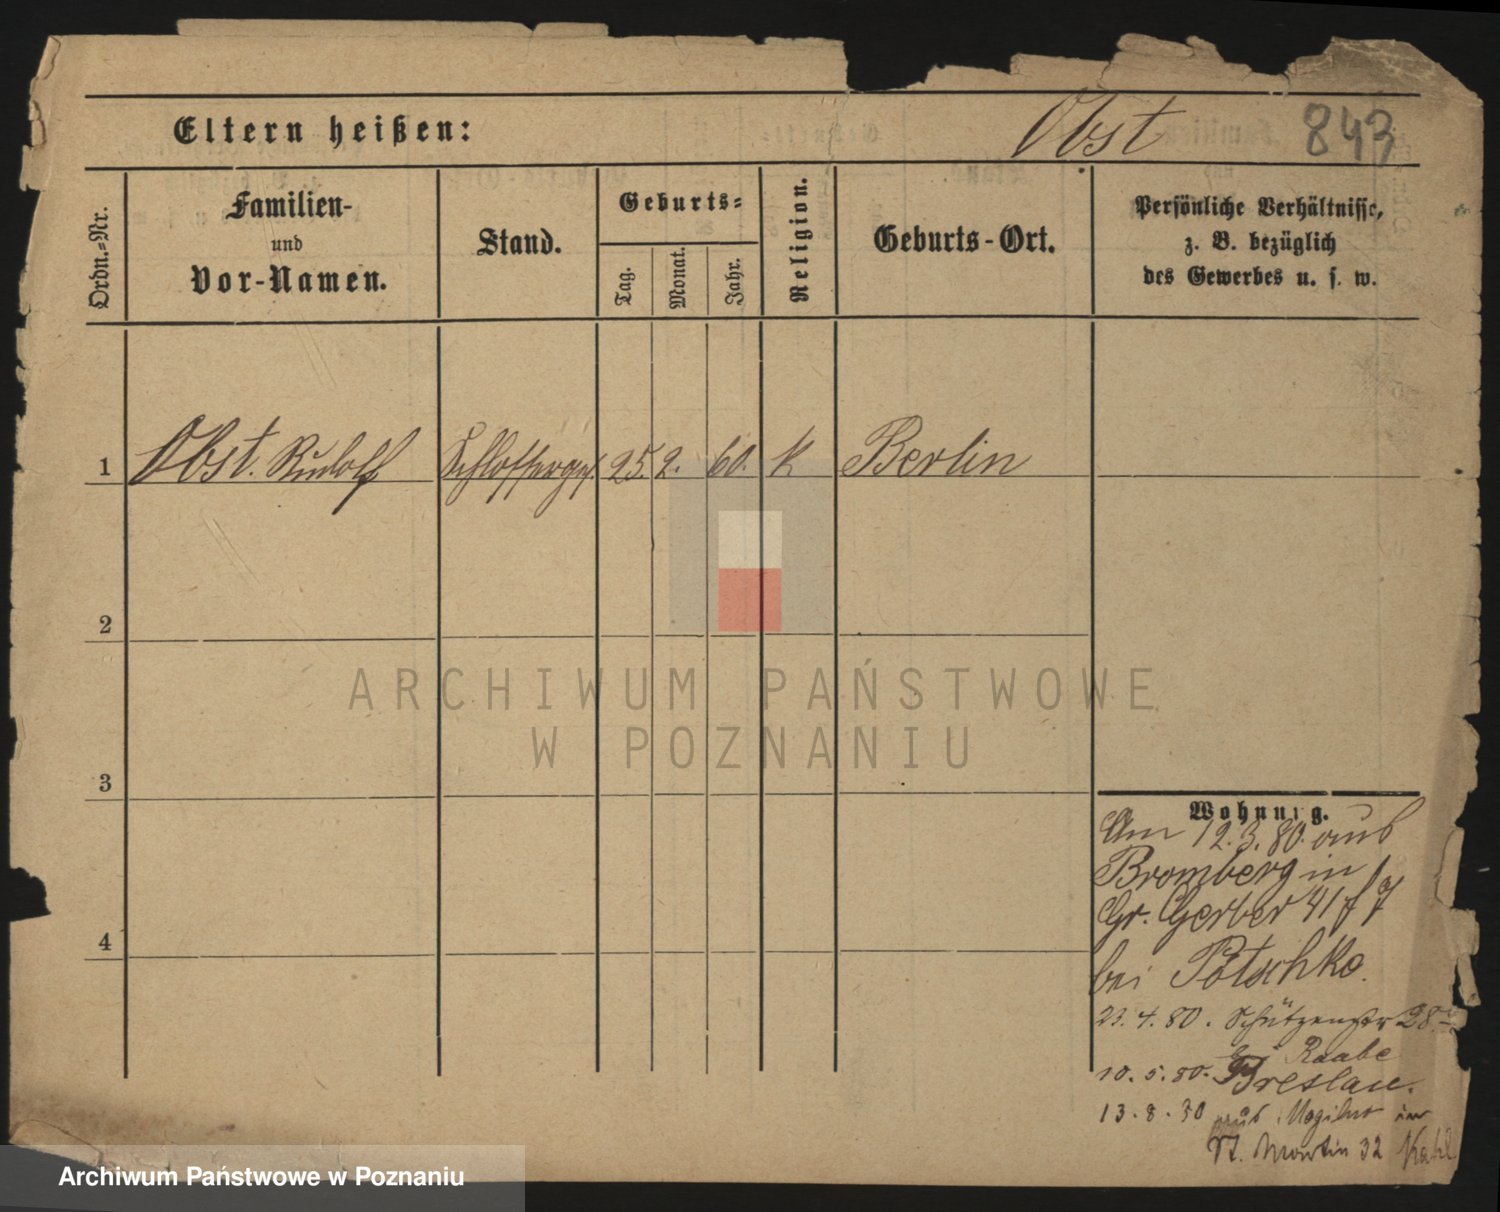 Eltern heißen: Obst 843
Ordn.-Nr.
Familien-
und
Vor-Namen.
Stand.
Geburts-
Tag.
Monat.
Jahr.
Religion.
Geburts-Ort.
Persönliche Verhältnisse,
z. B. bezüglich
des Gewerbes u. s. w.
1 Obst. Rudolf Schlosserges. 25. 2. 60. k Berlin
2
3
4
Wohnung.
Am 12.3.80. aus
Bromberg in
Gr. Gerber 41
bei Potschke.
23.4.80. Schützenstr 28
bei Raabe
10.5.80. Breslau.
13.8.80 aus Mogilno in
St. Martin 32
ARCHIWUM PAŃSTWOWE
W POZNANIU
Archiwum Państwowe w Poznaniu